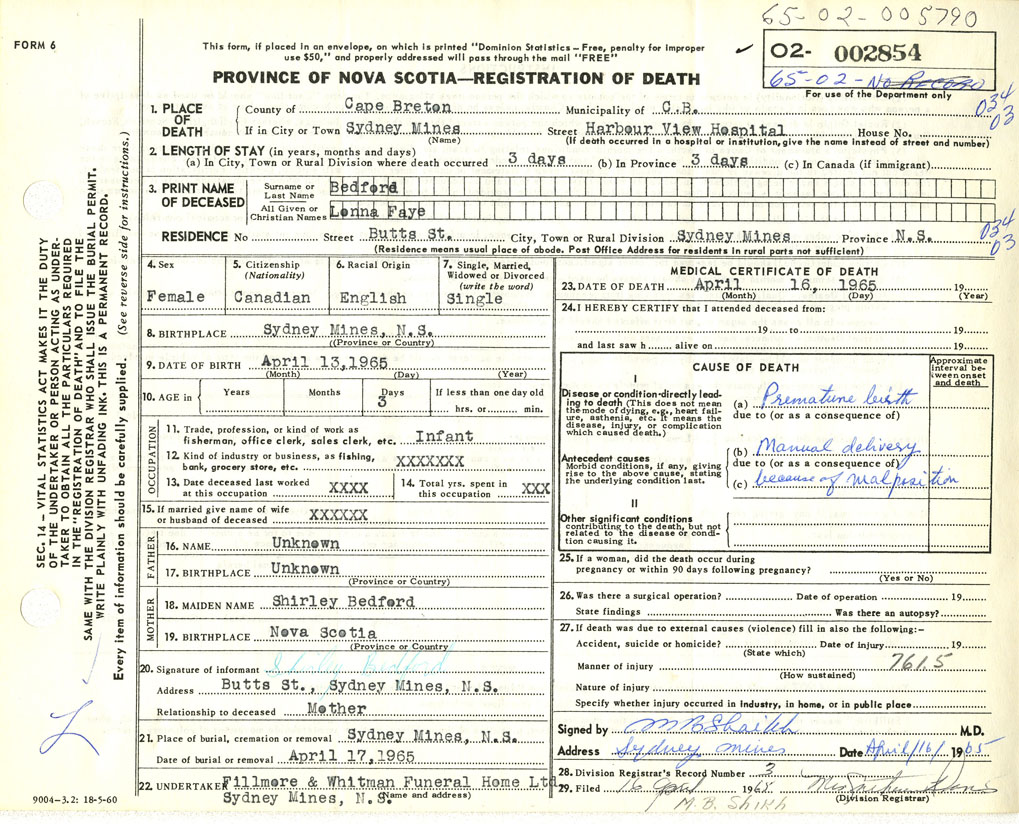 65-02-005790
FORM 6
This form, if placed in an envelope, on which is printed "Dominion Statistics—Free, penalty for improper
use $50," and properly addressed will pass through the mail "FREE"
✓ 02- 002854
65-02-No Record
For use of the Department only
PROVINCE OF NOVA SCOTIA—REGISTRATION OF DEATH
034
03
1. PLACE OF DEATH County of Cape Breton Municipality of C.B.
If in City or Town Sydney Mines Street Harbour View Hospital House No.
(Name) (If death occurred in a hospital or institution, give the name instead of street and number)
2. LENGTH OF STAY (in years, months and days)
(a) In City, Town or Rural Division where death occurred 3 days (b) In Province 3 days (c) In Canada (if immigrant)
3. PRINT NAME OF DECEASED Surname or Last Name Bedford
All Given or Christian Names Lonna Faye
RESIDENCE No Street Butts St. City, Town or Rural Division Sydney Mines Province N.S.
(Residence means usual place of abode. Post Office Address for residents in rural parts not sufficient)
034
03
4. Sex Female
5. Citizenship (Nationality) Canadian
6. Racial Origin English
7. Single, Married, Widowed or Divorced (write the word) Single
8. BIRTHPLACE Sydney Mines, N.S.
((Province or Country)
9. DATE OF BIRTH April 13,1965
(Month) (Day) (Year)
10. AGE in Years Months Days 3 If less than one day old hrs. or min.
OCCUPATION
11. Trade, profession, or kind of work as
fisherman, office clerk, sales clerk, etc. Infant
12. Kind of industry or business, as fishing,
bank, grocery store, etc. XXXXXXX
13. Date deceased last worked at this occupation XXXX
14. Total yrs. spent in this occupation XXX
15. If married give name of wife
or husband of deceased XXXXXX
FATHER
16. NAME Unknown
17. BIRTHPLACE Unknown
(Province or Country)
MOTHER
18. MAIDEN NAME Shirley Bedford
19. BIRTHPLACE Nova Scotia
(Province or Country)
20. Signature of informant Shirley Bedford
Address Butts St., Sydney Mines, N.S.
Relationship to deceased Mother
21. Place of burial, cremation or removal Sydney Mines, N.S.
Date of burial or removal April 17,1965
22. UNDERTAKER Fillmore & Whitman Funeral Home Ltd
Sydney Mines, N.S.
(Name and address)
MEDICAL CERTIFICATE OF DEATH
23. DATE OF DEATH April 16, 1965 19
(Month) (Day) (Year)
24. I HEREBY CERTIFY that I attended deceased from:
19 to 19
and last saw h alive on 19
CAUSE OF DEATH
Approximate interval between onset and death
I
Disease or condition directly leading to death (This does not mean
the mode of dying, e.g., heart failure, asthenia, etc. It means the
disease, injury, or complication
which caused death.)
(a) Premature birth
due to (or as a consequence of)
Antecedent causes
Morbid conditions, if any, giving
rise to the above cause, stating
the underlying condition last.
(b) Manual delivery
due to (or as a consequence of)
(c) because of malposition
II
Other significant conditions
contributing to the death, but not
related to the disease or condition causing it.
25. If a woman, did the death occur during
pregnancy or within 90 days following pregnancy?
(Yes or No)
26. Was there a surgical operation? Date of operation 19
State findings Was there an autopsy?
27. If death was due to external causes (violence) fill in also the following:—
Accident, suicide or homicide? Date of injury 19
(State which)
Manner of injury 761.5
(How sustained)
Nature of injury
Specify whether injury occurred in industry, in home, or in public place
Signed by M B Shaikh M.D.
Address Sydney Mines Date April/16/ 1965
28. Division Registrar's Record Number 3
29. Filed 16 April 1965
(Division Registrar)
M.B. SHIKH
SEC. 14—VITAL STATISTICS ACT MAKES IT THE DUTY
OF THE UNDERTAKER OR PERSON ACTING AS UNDER-
TAKER TO OBTAIN ALL THE PARTICULARS REQUIRED
IN THE "REGISTRATION OF DEATH" AND TO FILE THE
SAME WITH THE DIVISION REGISTRAR WHO SHALL ISSUE THE BURIAL PERMIT.
WRITE PLAINLY WITH UNFADING INK. THIS IS A PERMANENT RECORD.
Every item of information should be carefully supplied. (See reverse side for instructions.)
9004-3.2: 18-5-60